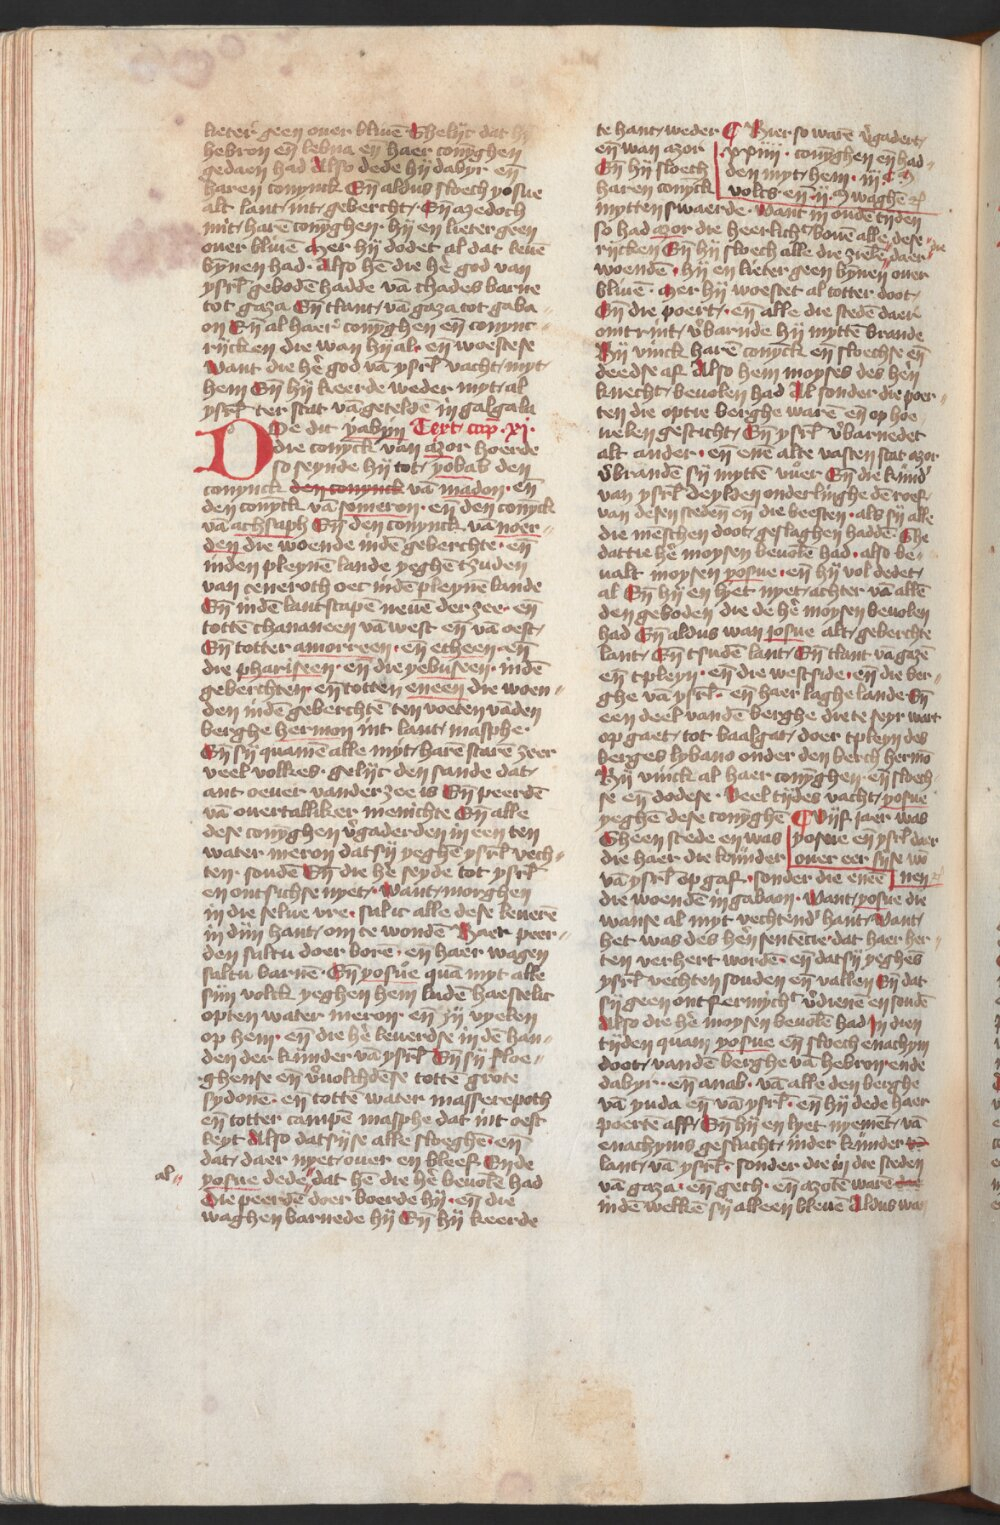 lieter geen over blivē Ghelijc dat hij
hebron eñ lebna en haer conyghen
gedaen had Also dede hij dabyr eñ
haren conynck Eñ aldus sloech yosue
alt lant int geberchte Eñ azedoch
mit harē conyghen hij en lieter geen
over blivē Mer hij dodet al dat levē
bynen had Also hē die hē god van
ysrl̄ gebodē hadde vā chades barne
tot gaza Eñ tlant vā gaza tot gaba
on Eñ al haer conyghen eñ conync-
rijcken die wan hij al en woestese
Want die hē god vā ysrl̄ vacht myt
hem Eñ hij keerde weder myt al
ysrl̄ ter stat vā getelde in galgala
Doe dit yabyn Text cap xi
die conyck van azor hoerde
so seynde hij tot yobab den
conynck den conynck vā madon eñ
den conyck vā someron eñ den conyck
vā achsaph Eñ den conynck vā noer-
den die woende indē geberchte eñ
inden pleynē lande yeghē tzuden
van ceneroth oec indē pleynē lande
Eñ indē lantscapē nevē der zee eñ
tottē chananeen vā west eñ vā oest
Eñ totter amorreen eñ etheen eñ
die phariseen eñ die yebuseen indē
geberchten eñ totten eneen die woen-
den indē geberchtē ten voeten vāden
berghe hermon int lant masphe
Eñ sij quamē alle myt harē starē zeer
veel volkes gelijc den sande dat
ant oever vander zee is Eñ peerdē
vā overtalliker menichte Eñ alle
dese conyghen v̄gaderden in een ten
water meron dat sij yeghē ysrl̄ vech-
ten soudē Eñ die hē seyde tot ysrl̄
en ontsichse nyet Want morghen
in die selve vre sal ic alle dese leverē
in dijn hant om te wondē Haer peer-
den saltu doer borē eñ haer wagen
saltu barnē Eñ yosue quā myt alle
sijn volck yeghen hem ludē haestelic
opten water meron eñ sij vyelen
op hem eñ die hē leverdse in dē han-
den der kinder vā ysrl̄ Eñ sij sloe-
ghense eñ v̄volchdēse tottē grote
sydonē eñ tottē water masserepoth
eñ totter campē masphe dat int oest
leyt Also dat sijse alle sloeghē eñ
dat daer nyet over en bleef Ende
al
yosue dede dat hē die hē bevolē had
Die peerdē doer boerde hij eñ die
waghen barnede hij Eñ hij keerde
te hant weder
eñ wan azor
Eñ hij sloech
haren conyck
Hier so warē v̄gadert
xxiiii conyghen eñ had-
den myt hem iii
volcs eñ ii waghē
mytten swaerde Want in oude tijden
so had azor die heerlicht bovē alle dese
rijcken Eñ hij sloech alle die zielē die daer
woendē hij en lieter geen bynen over
blivē Mer hij woestet al totter doot
Eñ die poert eñ alle die stedē daer
omtrint v̄barnde hij myttē brande
Hij vinck harē conyck eñ sloechse eñ
deedse af Also hem moyses des hēn
knecht bevolen had Al sonder die poer-
ten die optie berghe warē eñ op hoe
velen gesticht Eñ ysrl̄ v̄barnedet
alt ander eñ ene alte vasten stat azor
v̄branden sij myttē vuer Eñ die kīnd
van ysrl̄ deylden onderlinghe dē roef
van desen steden eñ die beesten als sij alle
die meschen doot geslaghen haddē Ghe
dattie hē moysen bevolē had also be-
valt moysen yosue eñ hij vol dedet
al Eñ hij en lyet nyet achter vā allē
den geboden die de hē moysen bevolen
had Eñ aldus wan josue alt geberchte
lant Eñ tsudē lant Eñ tlant vā gazē
eñ tpleyn eñ die westside eñ die ber-
ghe vā ysrl̄ eñ haer laghe lande Eñ
een deel vandē berghe die te seyr wart
op gaet tot baalgat doer tpleyn des
berges lybano onder den berch hermō
Hij vinck al haer conyghen eñ sloech-
se eñ dodese Veel tijdes vacht yosue
yeghē dese conyghē
Gheen stede en was
die haer die kīnder
Vijf jaer was
yosue eñ ysrl̄ daer
over eer sijse wō
nen
vā ysrl̄ op gaf sonder die eneē
die woendē in gabaon Want yosue die
wanse al myt vechtend hant Want
het was des hēn sentēcie dat haer her-
ten verhert wordē eñ dat sij yeghēs
ysrl̄ vechten souden eñ vallen Eñ dat
sij geen ontfermich v̄dienē en soudē
Also die hē moysen bevolē had In dien
tijden quam yosue eñ sloech enachym
doot vandē berghe vā hebron ende
dabyr eñ anab vā alle den berghe
vā yuda eñ vā ysrl̄ eñ hij dede haer
poerte aff Eñ hij en lyet nyemēt vā
enachyms geslacht inder kīnder
lant vā ysrl̄ sonder die in die steden
vā gaza eñ geth eñ azotē warē
indē welkē sij alleen blevē Aldus wan